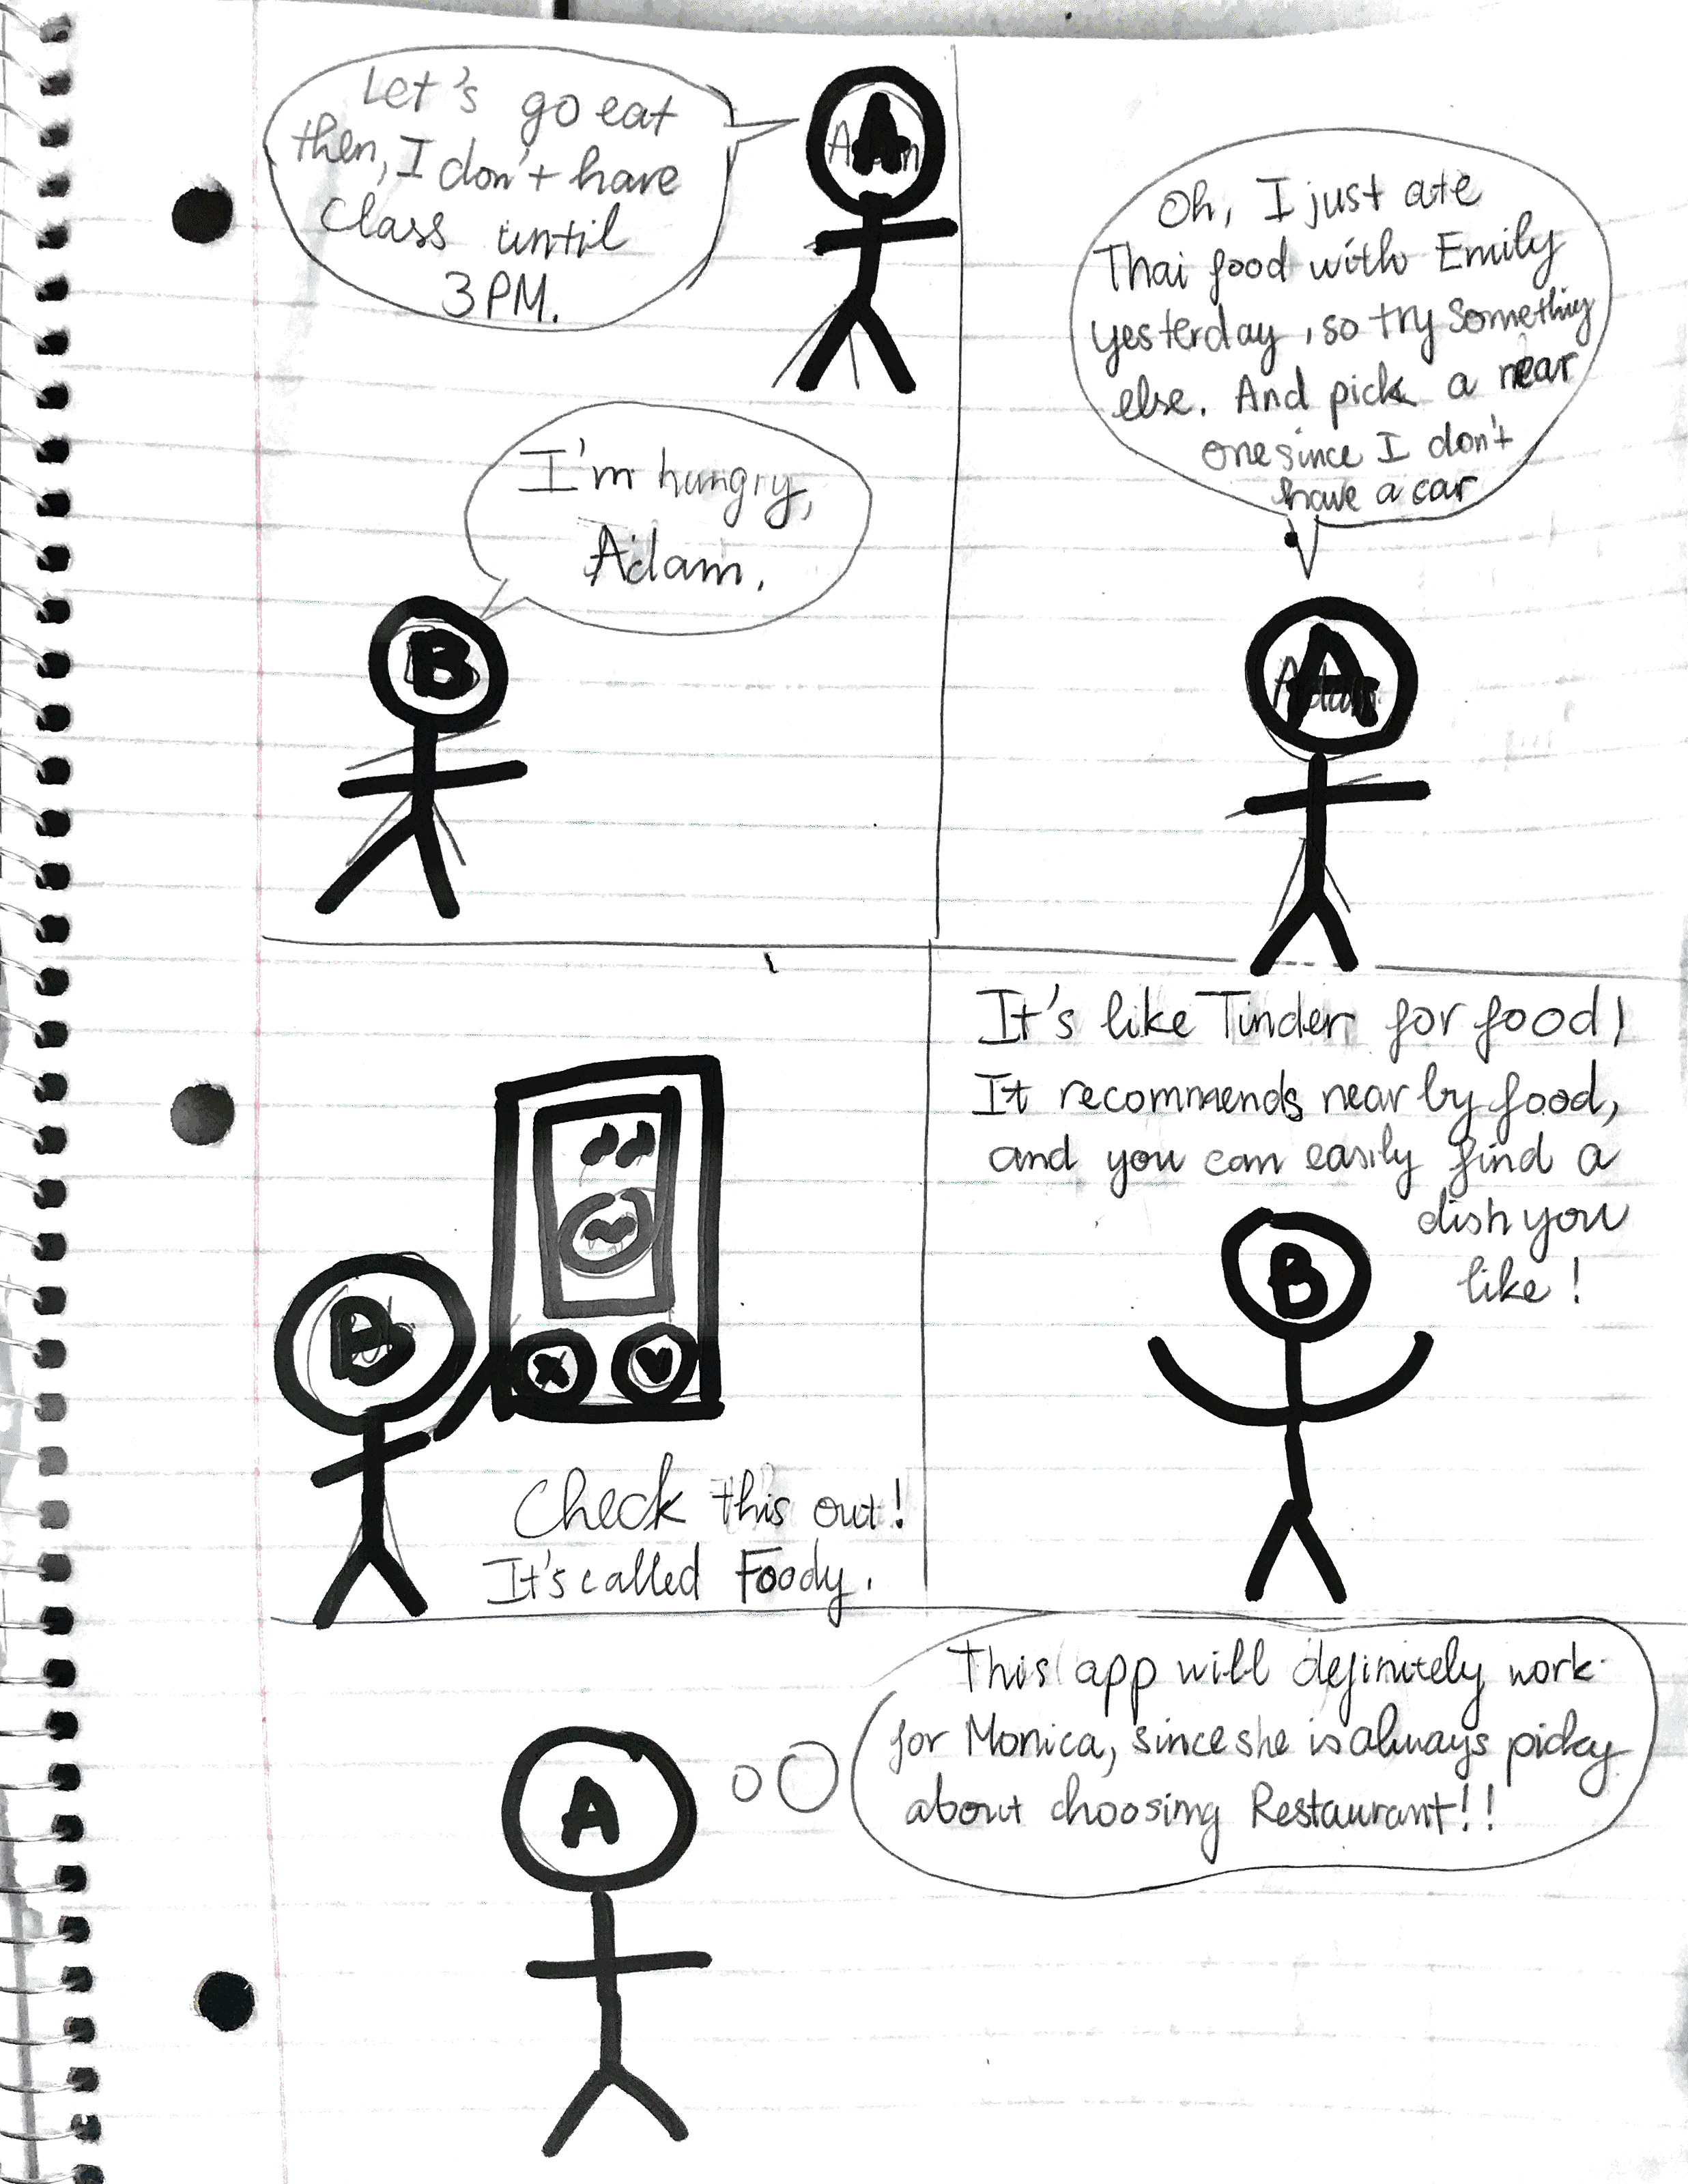 Let's go eat
then, I don't have
class until
3PM.
A
I'm hungry,
Adam.
B
Oh, I just ate
Thai food with Emily
yesterday, so try something
else. And pick a near
one since I don't
have a car
A
B
Check this out!
It's called Foody.
It's like Tinder for food!
It recommends near by food,
and you can easily find a
dish you
like!
B
This app will definitely work
for Monica, since she is always picky
about choosing Restaurant!!
A